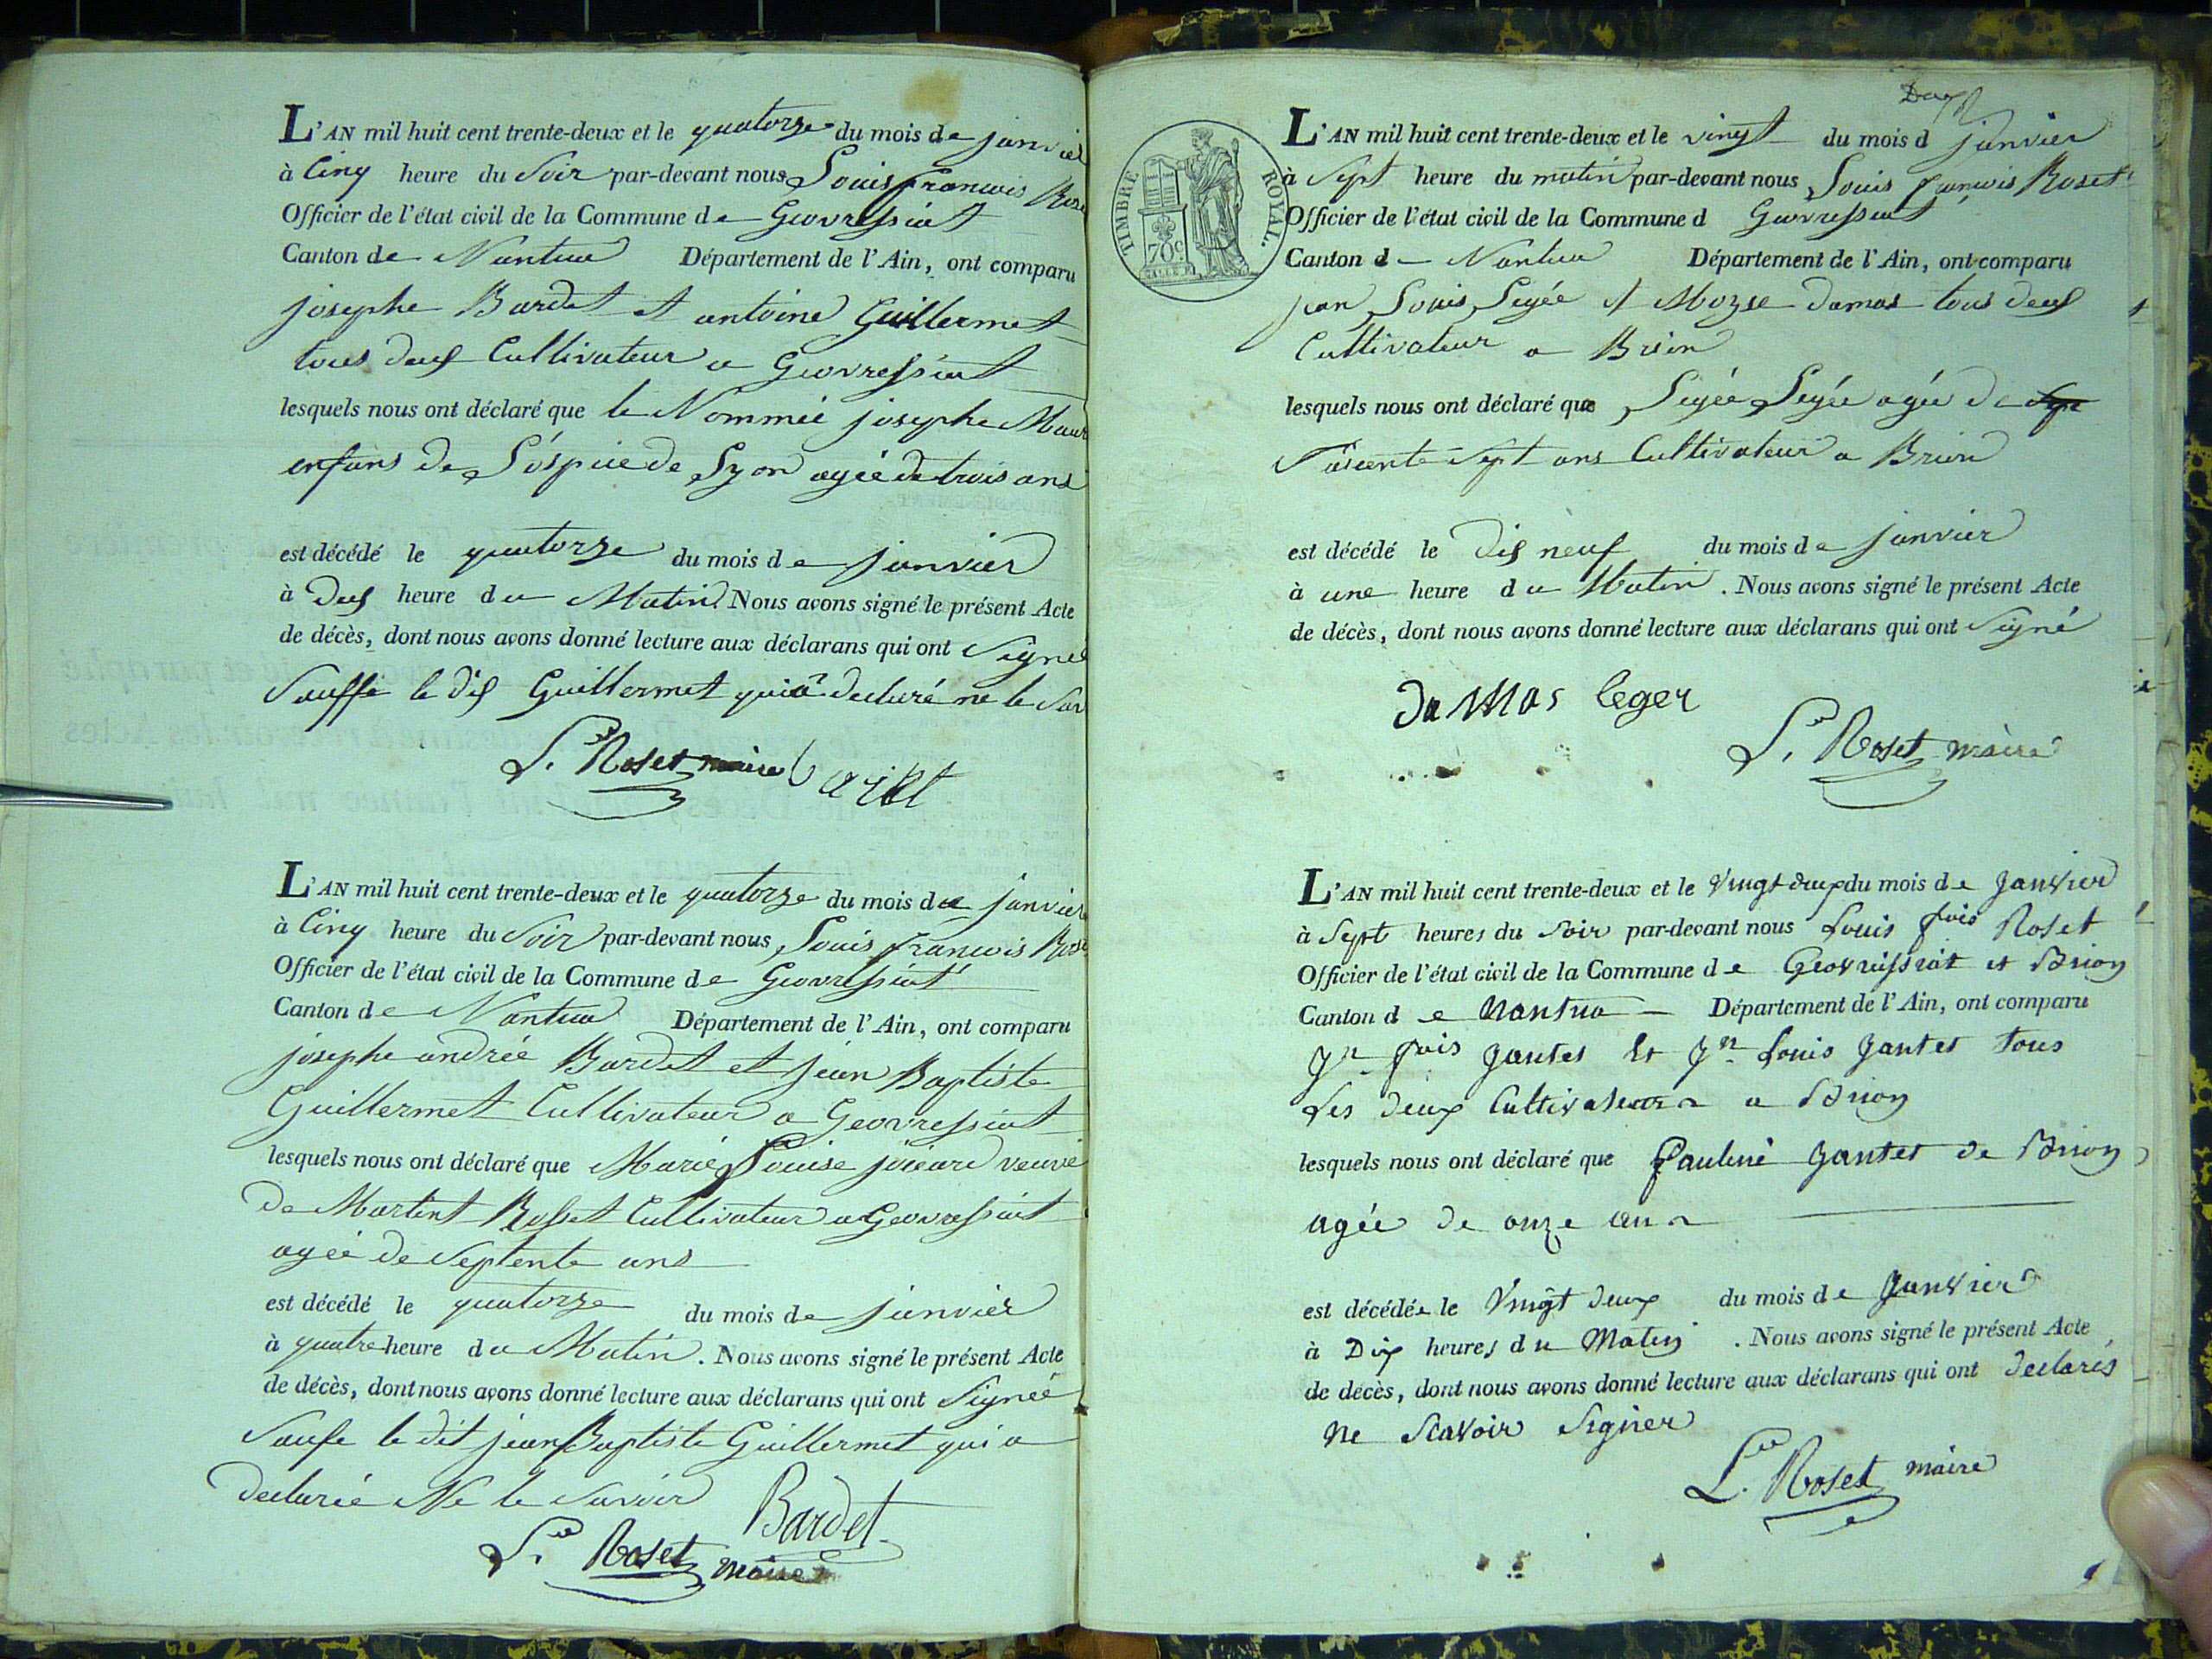 L'AN mil huit cent trente-deux et le quatorze du mois de janvier
à Cinq heure du Soir par-devant nous Louis francois
Officier de l'état civil de la Commune de Geovressiat
Canton de Nantua Département de l'Ain, ont comparu
josephe Bardet et antoine Guillermet
tous deux Cultivateur a Geovressiat
lesquels nous ont déclaré que le Nommée josephe
enfans de L'óspice de Lyon agée de trois ans
est décédé le quatorze du mois de janvier
à Deux heure du Matin. Nous avons signé le présent Acte
de décès, dont nous avons donné lecture aux déclarans qui ont Signé
Sauffe le dis Guillermet qui â declaré ne le
L. Roset maire
L'AN mil huit cent trente-deux et le quatorze du mois de janvier
à Cinq heure du Soir par-devant nous Louis francois
Officier de l'état civil de la Commune de Geovressiat
Canton de Nantua Département de l'Ain, ont comparu
josephe andrée Bardet et jean Baptiste
Guillermet Cultivateur a Geovressiat
lesquels nous ont déclaré que Marie Louise veuve
de Martint Rosset Cultivateur a Geovressiat
agée de Septente ans
est décédé le quatorze du mois de janvier
à quatre heure du Matin. Nous avons signé le présent Acte
de décès, dont nous avons donné lecture aux déclarans qui ont Signée
Saufe le dit jean Baptiste Guillermet qui a
declarée Ne le Savoir Bardet
L. Roset maire
TIMBRE ROYAL.
70c
L'AN mil huit cent trente-deux et le vingt du mois d janvier
à Sept heure du matin par-devant nous Louis francois Roset
Officier de l'état civil de la Commune d Geovressiat
Canton d Nantua Département de l'Ain, ont comparu
jean Louis Legée et Moyse damas tous deux
Cultivateur a Brion
lesquels nous ont déclaré que Legée Legée agée de
Soixente Sept ans Cultivateur a Brion
est décédé le Dix neuf du mois de janvier
à une heure du Matin. Nous avons signé le présent Acte
de décès, dont nous avons donné lecture aux déclarans qui ont Signé
Damas leger
L. Roset maire
L'AN mil huit cent trente-deux et le Vingt deux du mois de Janvier
à Sept heures du Soir par-devant nous Louis fois Roset
Officier de l'état civil de la Commune de Geovreissiat et Brion
Canton de Nantua Département de l'Ain, ont comparu
Jn fois Jantet Et Jn Louis Jantet Tous
Les deux Cultivateurs a Brion
lesquels nous ont déclaré que Pauline Jantet de Brion
agée de onze ans
est décédée le Vingt deux du mois de Janvier
à Dix heures du Matin. Nous avons signé le présent Acte
de décès, dont nous avons donné lecture aux déclarans qui ont declarés
Ne Scavoir Signer
L. Roset maire